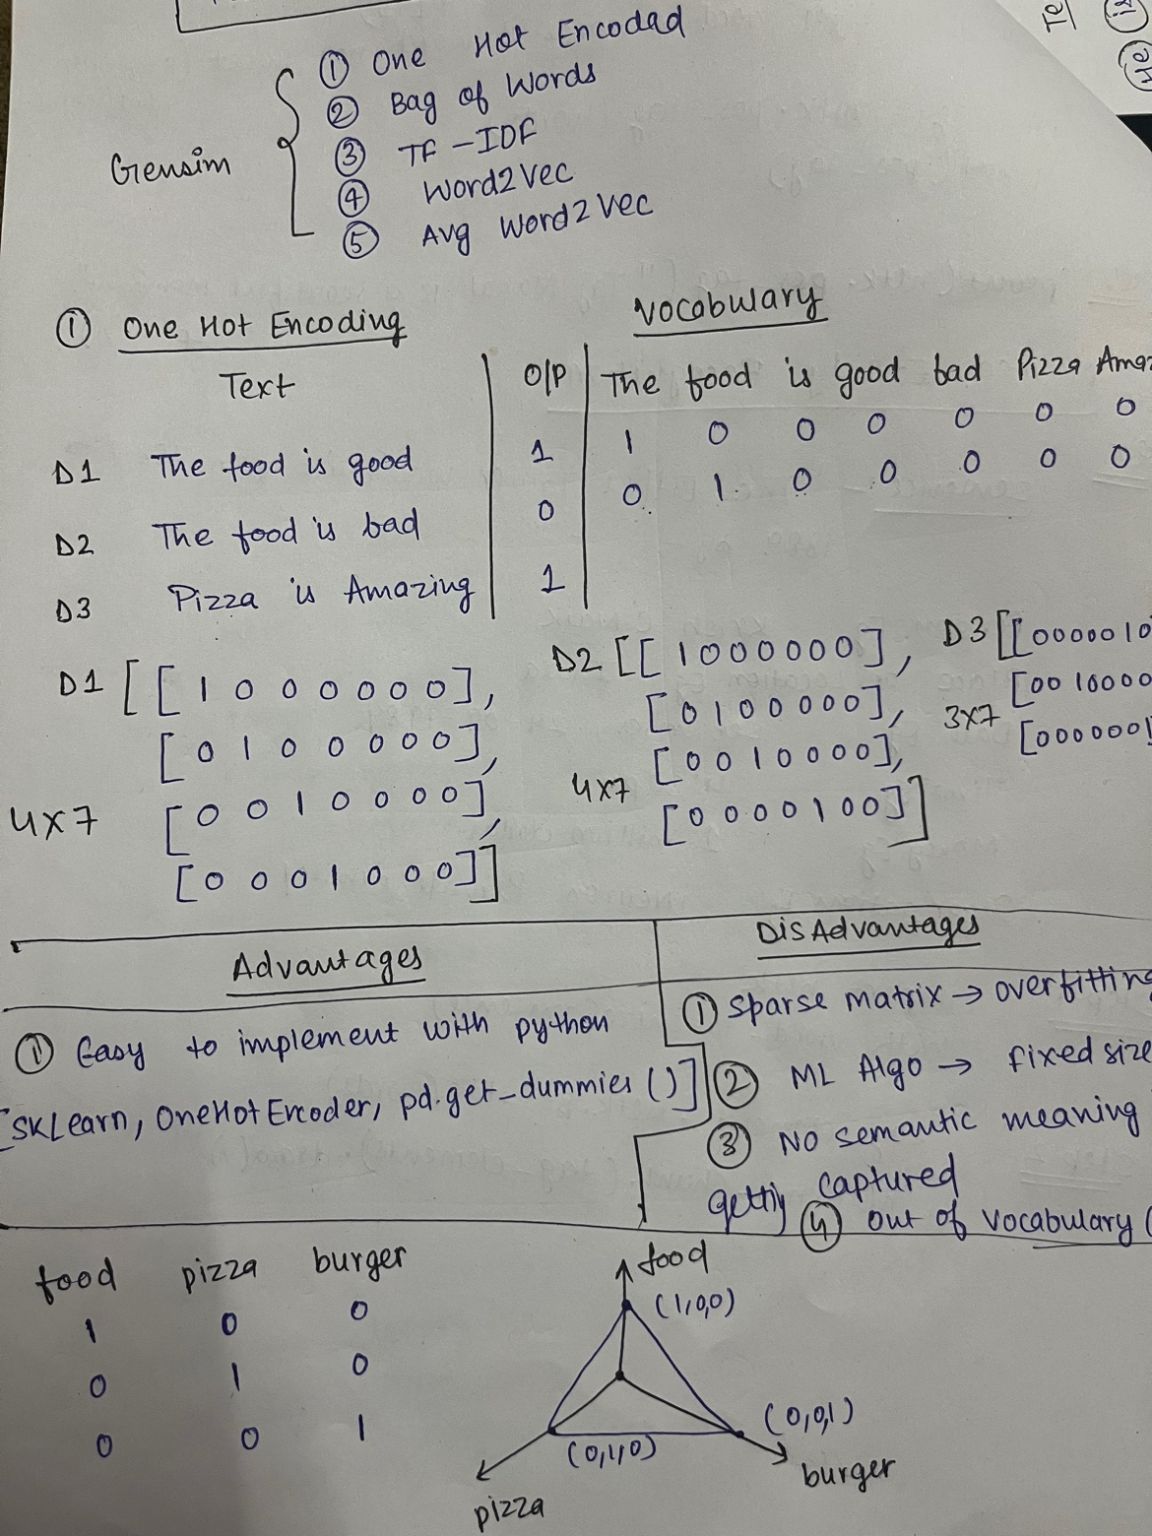 ① One Hot Encodad
② Bag of Words
Gensim
③ TF-IDF
④ Word2Vec
⑤ Avg Word2Vec
① One Hot Encoding
Vocabulary
Text O/P The food is good bad Pizza Amaz
D1 The food is good 1 1 0 0 0 0 0 0
D2 The food is bad 0 0 1 0 0 0 0 0
D3 Pizza is Amazing 1
D1 [[1 0 0 0 0 0 0],
[0 1 0 0 0 0 0],
4x7 [0 0 1 0 0 0 0],
[0 0 0 1 0 0 0]]
D2 [[1 0 0 0 0 0 0],
[0 1 0 0 0 0 0],
4x7 [0 0 1 0 0 0 0],
[0 0 0 0 1 0 0]]
D3 [[0 0 0 0 0 1 0
[0 0 1 0 0 0 0
3x7 [0 0 0 0 0 0 1
Advantages
① Easy to implement with python
[SKLearn, OneHotEncoder, pd.get_dummies()]
DisAdvantages
① Sparse matrix → overfitting
② ML Algo → fixed size
③ No semantic meaning
getting captured
④ out of vocabulary (
food pizza burger
1 0 0
0 1 0
0 0 1
food
(1,0,0)
(0,0,1)
(0,1,0)
burger
pizza